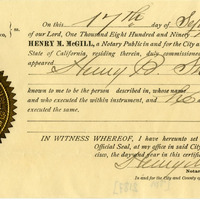 On this 17th day of Se
of our Lord, One Thousand Eight Hundred and Ninety
HENRY M. McGILL, a Notary Public in and for the City a
State of California, residing therein, duly commissione
appeared Henry B.
known to me to be the person described in, whose name
and who executed the within instrument, and he
executed the same.
IN WITNESS WHEREOF, I have hereunto set
Official Seal, at my office in said City
cisco, the day and year in this certific
Henry
Notar
In and for the City and County o